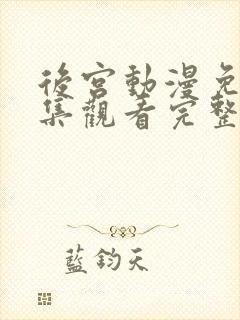 後宮動漫免
集觀看完整
藍鈞天